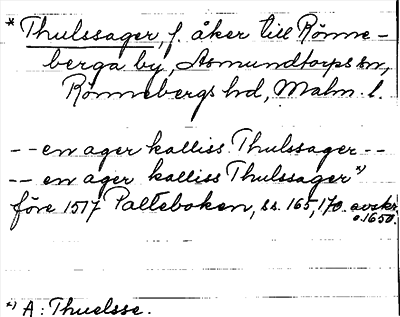 * Thulssager, f. åker till Rönne-
berga by, Asmundtorps sn,
Rönnebergs hd, Malm. l.
-- en ager kalliss Thulssager --
-- en ager kalliss Thulssager *)
före 1517 Palteboken, ss. 165, 170. avskr.
o. 1650.
*) A: Thuelsse.